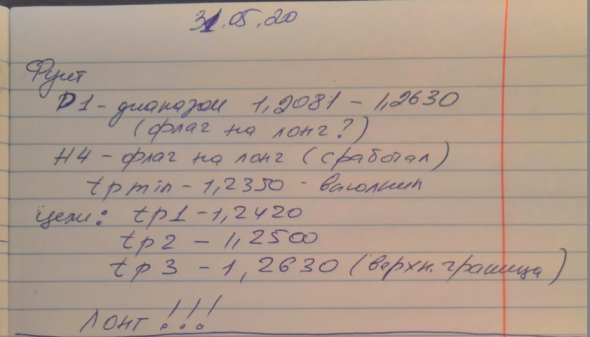 31.05.20
Фунт
D1 - диапазон 1,2081 - 1,2630
(флаг на лонг?)
H4 - флаг на лонг (сработал)
tp min - 1,2350 - выполнил
цели: tp1 - 1,2420
tp2 - 1,2500
tp3 - 1,2630 (верхн. граница)
Лонг!!!